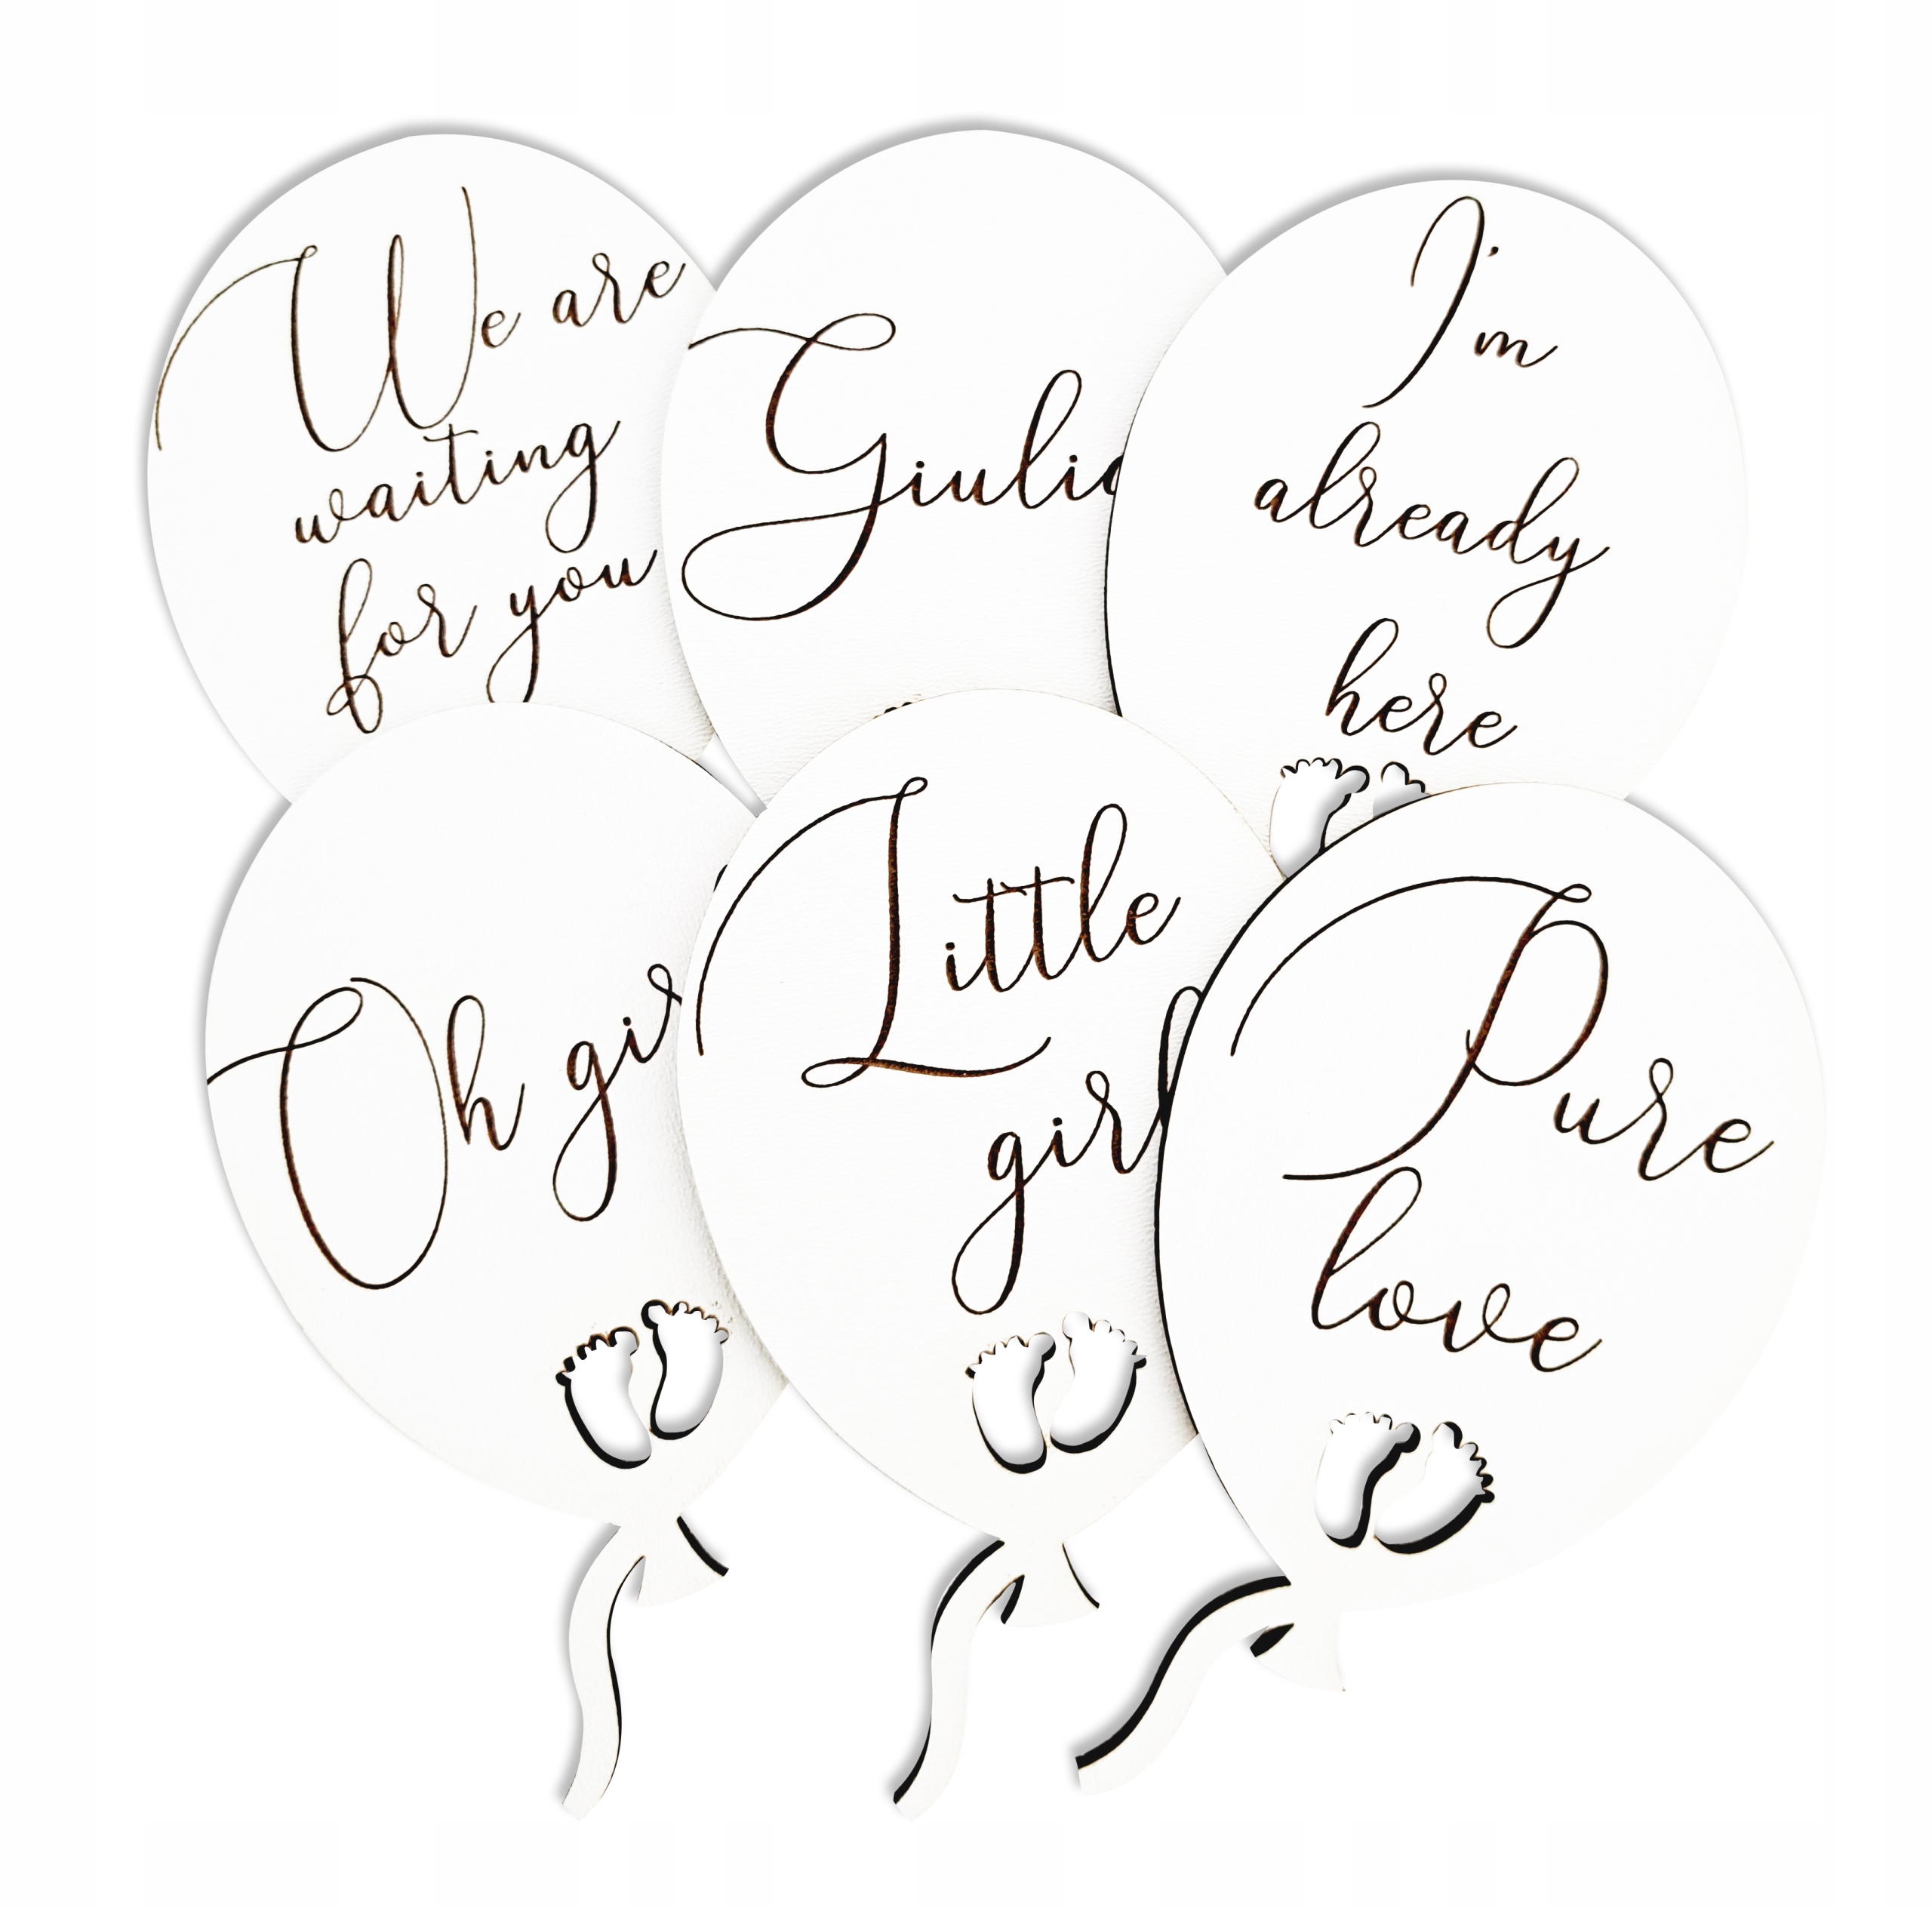 We are
waiting
for you
Giulia
I'm
already
here
Oh girl
Little
girl
Pure
love